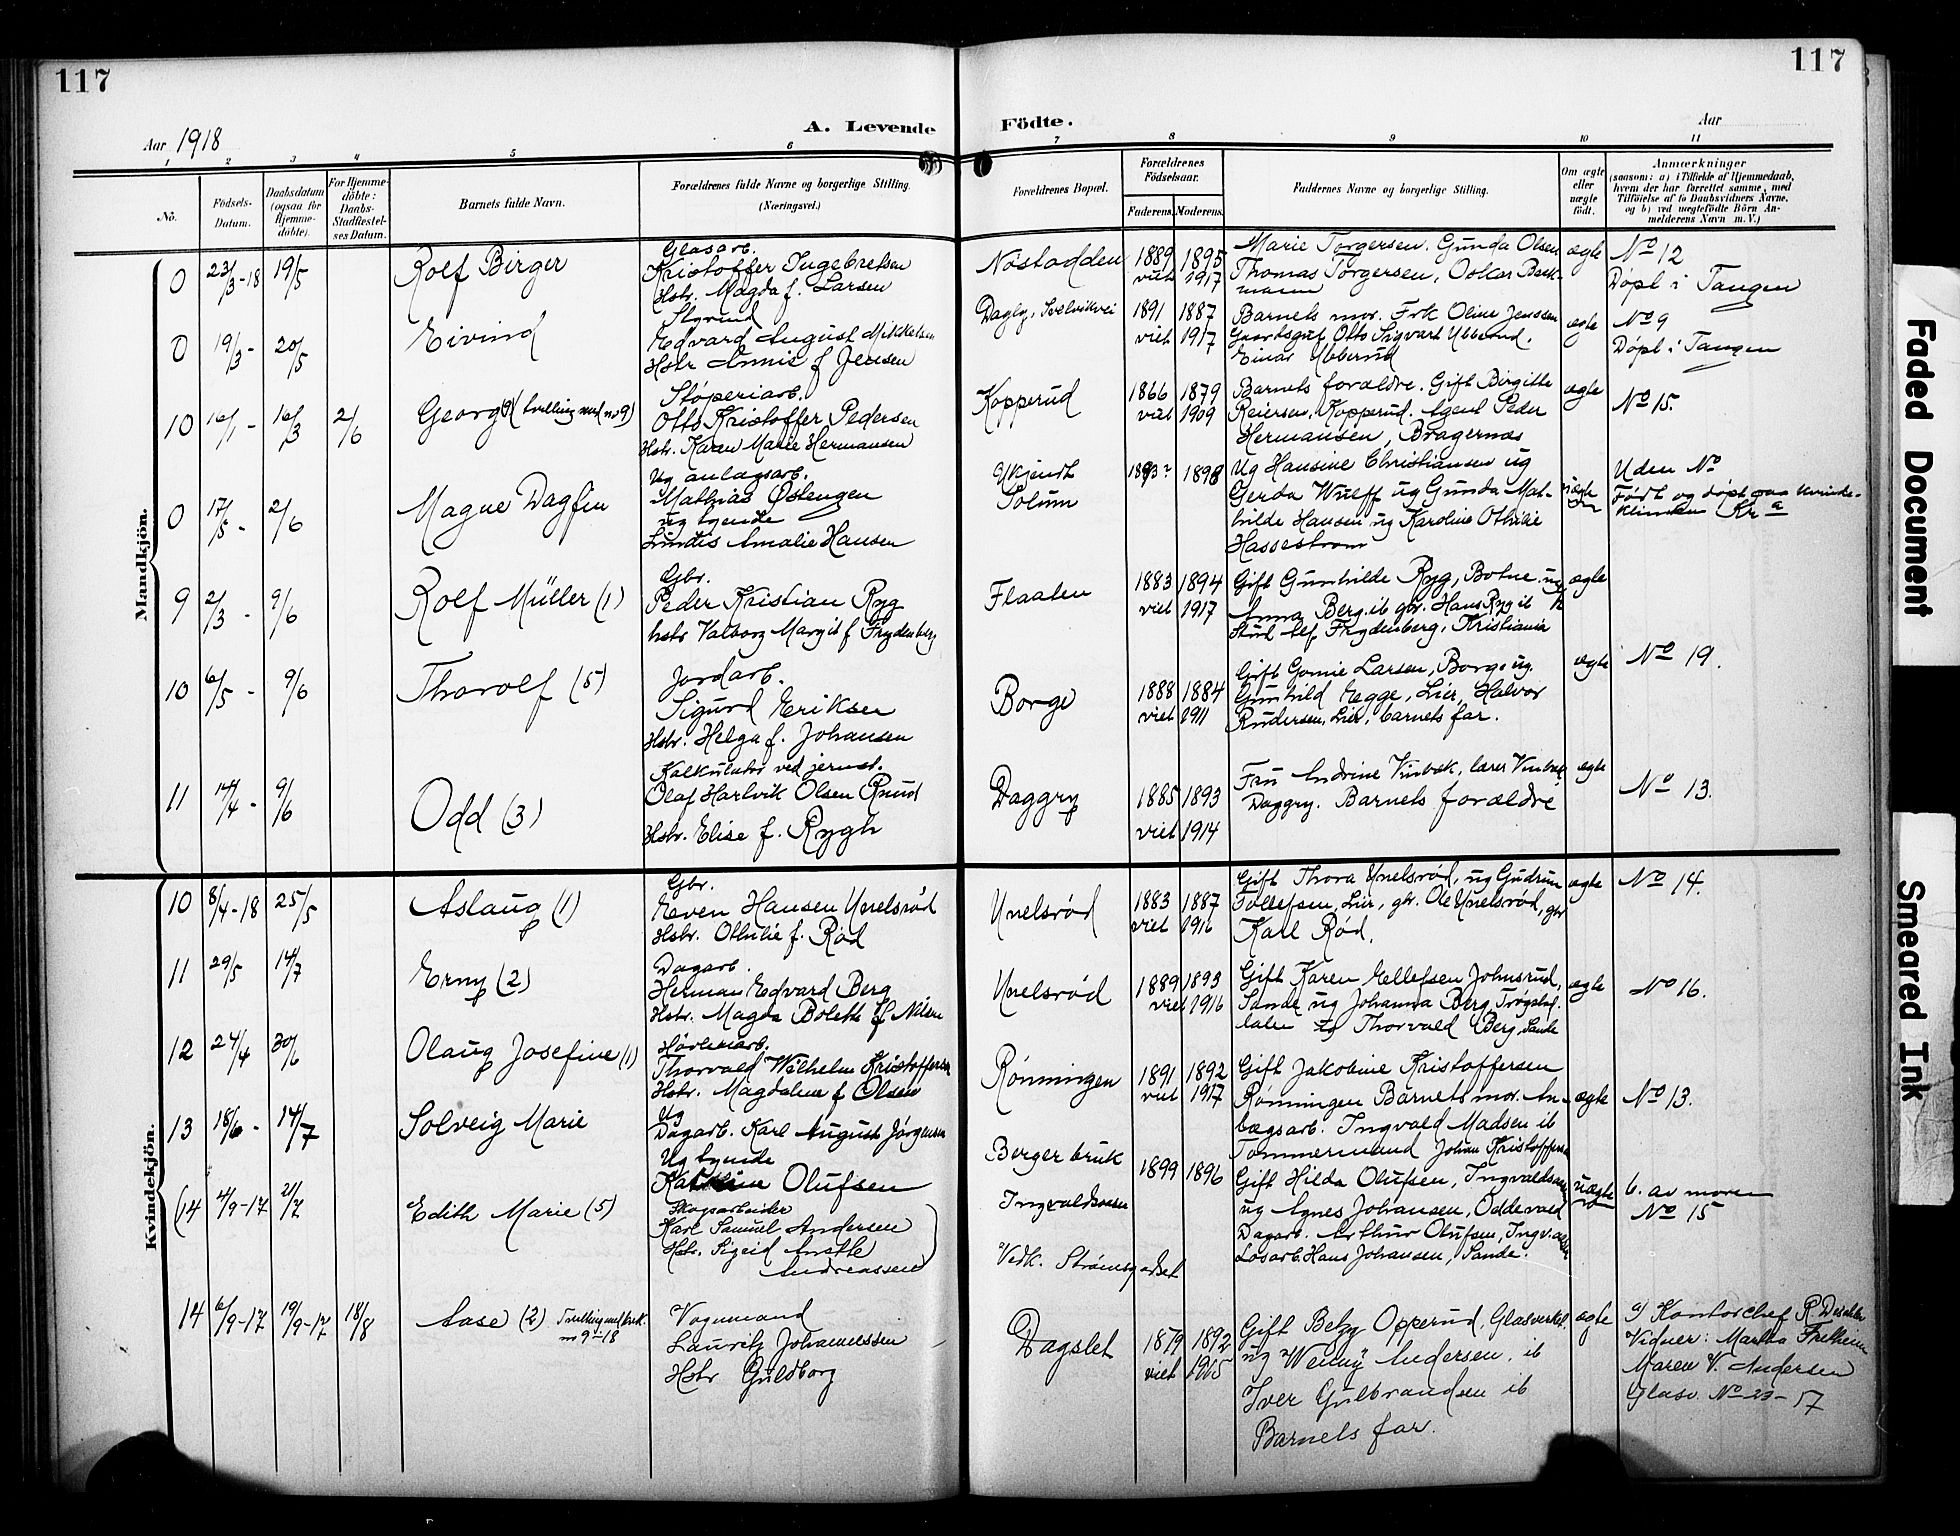 117
117
Aar 1918
A. Levende Födte.
Aar
1 2 3 4 5 6 7 8 9 10 11
No.
Födsels-Datum.
Daabsdatum (ogsaa för Hjemmedöbte).
For Hjemmedöbte: Daabs-Stadfæstelses Datum.
Barnets fulde Navn.
Forældrenes fulde Navne og borgerlige Stilling. (Næringsvei.)
Forældrenes Bopæl.
Forældrenes Födselsaar.
Faderens. Moderens.
Faddernes Navne og borgerlige Stilling.
Om ægte eller uægte födt.
Anmærkninger
(saasom: a) i Tilfælde af Hjemmedaab, hvem der har forrettet samme, med Tilföielse af to Daabsvidners Navne, og b) ved uægtefödte Börn Anmelderens Navn m. V.)
Mandkjön.
0 23/3-18 19/5 Rolf Birger
Glasarb.
Kristoffer Ingebretsen
Hstr. Magda f. Larsen
Nøstodden 1889 1895 viet 1917
Marie Torgersen. Gunda Olsen
Thomas Torgersen, Oskar Backmann
ægte No 12
Døpt i Tangen
0 19/3- 20/5 Eivind
Styrmd
Edvard August Mikkelsen
Hstr Annie f Jensen
Dagly, Svelvikvei 1891 1887 viet 1917
Barnets mor. Frk Oline Jenssen
Gaardsgut Otto Sigvart Ubberud.
Einar Ubberud
ægte No 9
Døpt i Tangen
10 16/1- 16/3 2/6 Georg (tvilling med no 9)
Støperiarb.
Otto Kristoffer Pedersen
Hstr. Karen Marie Hermansen
Kopperud 1866 1879 viet 1909
Barnets forældre. Gift Birgitte
Reiersen, Kopperud. Agent Peder
Hermansen, Bragernæs
ægte No 15.
0 17/5- 2/6 Magne Dagfin
Ug anlægsarb.
Mathias Østengen
ug tyende
Lundis Amalie Hansen
Ukjendt
Solum 1898
Ug Hansine Christiansen ug
Gerda Wulff ug Gunda Mathilde Hansen ug Karoline Othilie
Hassestrøm
uægte
Uden No
Født og døpt paa kvindeklinikken Kr a
9 2/3- 9/6 Rolf Müller (1)
Gbr.
Peder Kristian Ryg
hstr Valborg Margit f Frydenberg
Flaaten 1883 1894 viet 1917
Gift Gunhilde Ryg, Botne ug
Anna Berg ib gbr. Hans Ryg ib
Stud Frydenberg, Kristiania
ægte
10 6/5- 9/6 Thorolf (5)
Jordarb.
Sigurd Eriksen
Hstr. Helga f. Johansen
Borge 1888 1884 viet 1911
Gift Gomie Larsen, Borge ug
Gunhild Egge, Lier, Halvor
Rudersen, Lier, barnets far.
ægte No 19.
11 14/4- 9/6 Odd (3)
Kalkulatør ved jernst.
Olaf Hartvik Olsen Ruud
Hstr. Elise f. Rygh
Daggry 1885 1893 viet 1914
Fru Andrine Vinbæk, lærer Vinbæk
Daggry. Barnets forældre
ægte No 13.
Kvindekjön.
10 8/4-18 25/5 Aslaug (1)
Gbr.
Even Hansen Unelsrød
Hstr. Othilie f. Rød
Unelsrød 1883 1887 viet 1916
Gift Thora Unelsrød, ug Gudrun
Tollefsen, Lier, gbr. Ole Unelsrød, gbr
Karl Rød.
ægte No 14.
11 29/5 14/7 Erny (2)
Dagarb.
Herman Edvard Berg
Hstr. Magda Bolette f Nilsen
Unelsrød 1889 1893 viet 1916
Gift Karen Ellefsen Johnsrud,
Sande ug Johanna Berg
ug Thorvald Berg, Sande
ægte No 16.
12 24/4 30/6 Olaug Josefine (1)
Høvleriarb.
Thorvald Wilhelm Kristoffersen
Hstr. Magdalene f Olsen
Rønningen 1891 1892 viet 1917
Gift Jakobine Kristoffersen
Rønningen Barnets mor. Anlægsarb. Ingvald Madsen ib
Tømmermand Johan Kristoffersen
ægte No 13.
13 18/6- 14/7 Solveig Marie
Ug
Dagarb. Karl August Jørgensen
Ug tyende
Olufsen
Berger bruk
Ingvaldsåsen 1899 1896
Gift Hilda Olufsen, Ingvaldsåsen
ug Agnes Johansen, Oddevald
Dagarb. Arthur Olufsen, Ingv.
Løsarb. Hans Johansen, Sande.
uægte
b. av moren
No 15
(14 4/9-17 21/7 Edith Marie (5)
Skogsarbeider
Karl Samuel Andersen
Hstr. Sigrid
Andreassen)
Vedk. Strømsgodset
14 6/9-17 19/9-17 18/8 Aase (2) Tvilling med
no 9-18
Vognmand
Lauritz Johannessen
Hstr Guldborg
Dagslet 1879 1892 viet 1905
Gift Betzy Opperud, Glasverket
ug Wenny Andersen, ib
Iver Gulbrandsen ib
Barnets far.
ægte
Kontorchef R
Vidner: Martha
Maren V. Andersen
Glasv. No 23-17
Faded Document
Smeared Ink